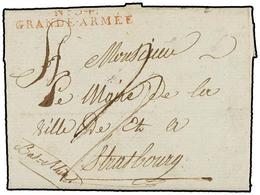 GRANDE ARMÉE
Monsieur
Le Maire de la
Ville de et a
Strasbourg